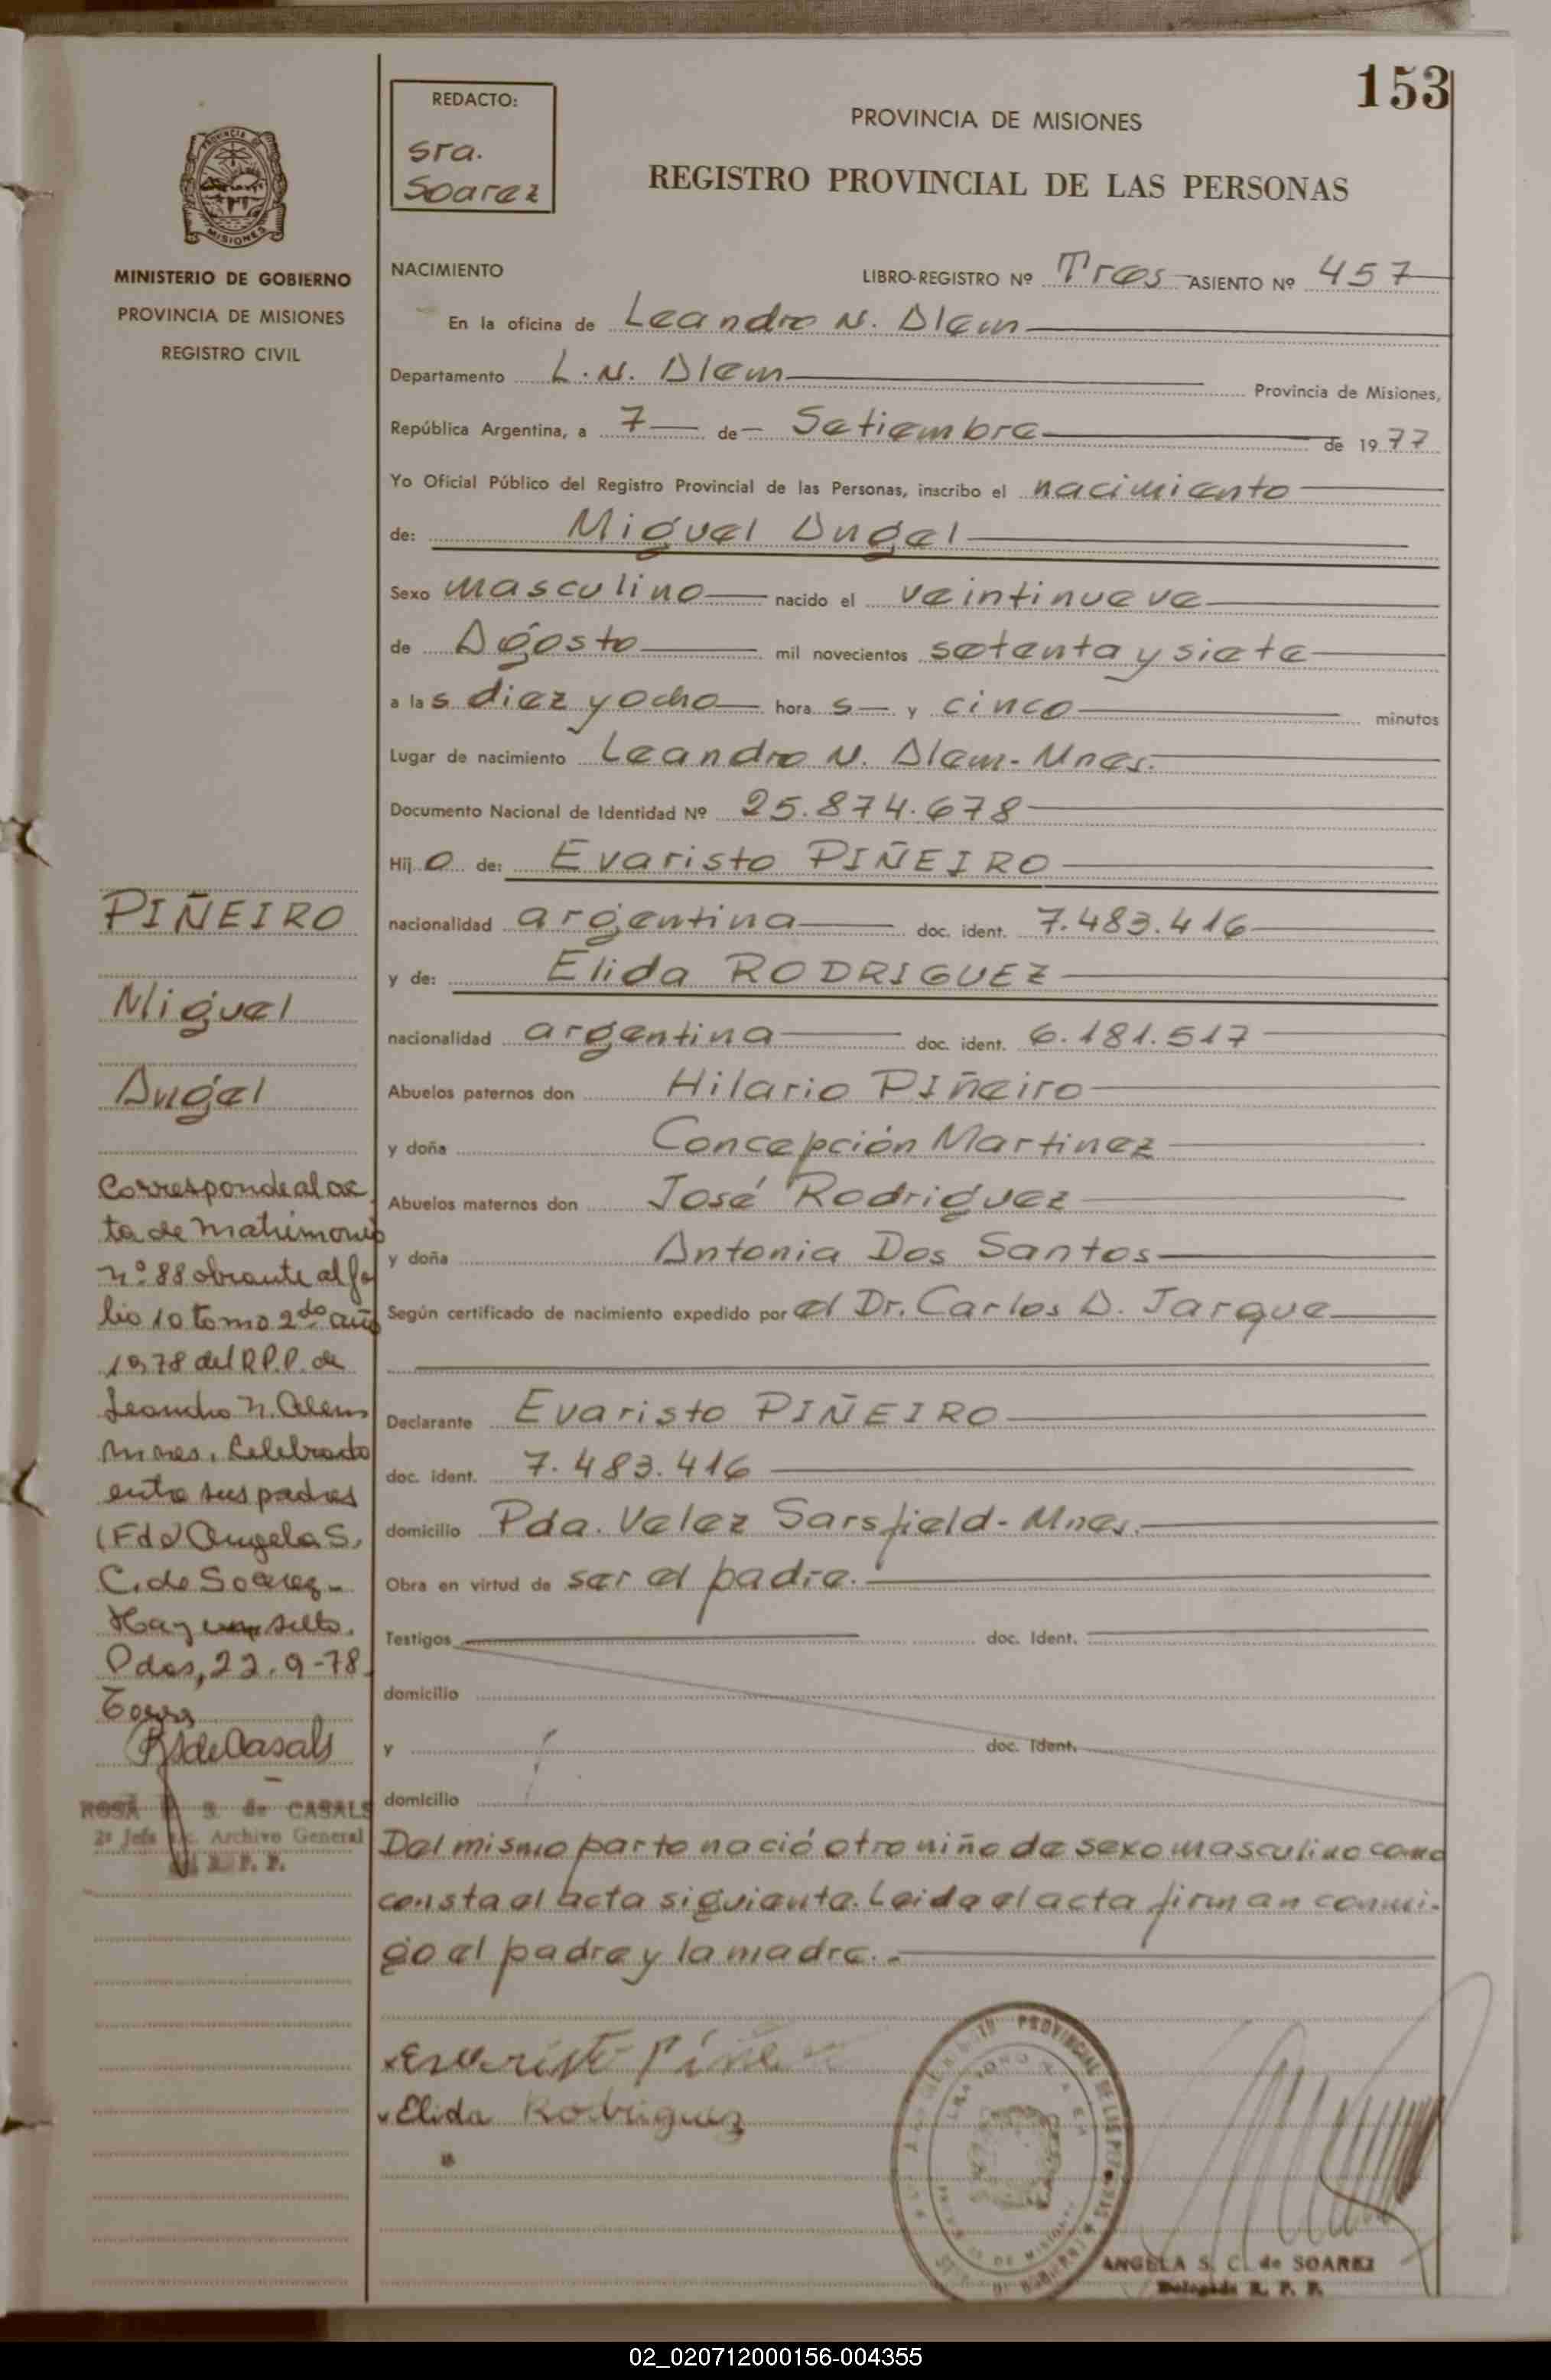 153
REDACTO:
Sra.
Soarez
PROVINCIA DE MISIONES
REGISTRO PROVINCIAL DE LAS PERSONAS
PROVINCIA DE
MISIONES
MINISTERIO DE GOBIERNO
PROVINCIA DE MISIONES
REGISTRO CIVIL
NACIMIENTO LIBRO-REGISTRO Nº Tres ASIENTO Nº 457
En la oficina de Leandro N. Alem
Departamento L. N. Alem Provincia de Misiones,
República Argentina, a 7 de Setiembre de 1977
Yo Oficial Público del Registro Provincial de las Personas, inscribo el nacimiento
de: Miguel Angel
Sexo masculino nacido el veintinueve
de Agosto mil novecientos setenta y siete
a las diez y ocho horas y cinco minutos
Lugar de nacimiento Leandro N. Alem - Mnes.
Documento Nacional de Identidad Nº 25.874.678
Hijo de: Evaristo PIÑEIRO
nacionalidad argentina doc. ident. 7.483.416
y de: Elida RODRIGUEZ
nacionalidad argentina doc. ident. 6.181.517
Abuelos paternos don Hilario Piñeiro
y doña Concepción Martinez
Abuelos maternos don José Rodriguez
y doña Antonia Dos Santos
Según certificado de nacimiento expedido por el Dr. Carlos A. Jarque
Declarante Evaristo PIÑEIRO
doc. ident. 7.483.416
domicilio Pda. Velez Sarsfield - Mnes.
Obra en virtud de ser el padre.
Testigos doc. Ident.
domicilio
y doc. Ident.
domicilio
Del mismo parto nació otro niño de sexo masculino como
consta el acta siguiente. Leida el acta firman conmi-
go el padre y la madre. -
Evaristo Piñe
Elida Rodriguez
ANGELA S. C. de SOAREZ
Delegada R. P. P.
PIÑEIRO
Miguel
Angel
Corresponde al ac
ta de matrimonio
nº 88 obrante al fo
lio 10 tomo 2do año
1978 del R.P.P. de
Leandro N. Alem
Mnes. Celebrado
entre sus padres
(Fdo) Angela S.
C. de Soarez -
Hay un sello.
Pdas, 22-9-78
R S de Casals
ROSA S. de CASALS
2ª Jefa Archivo General
R. P. P.
02_020712000156-004355